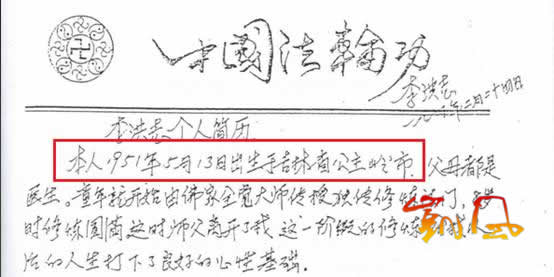 中國法輪功
李洪志
年二月二十四日
李洪志个人简历
本人1951年5月13日出生于吉林省公主岭市,父母都是
医生。童年就开始由佛家全觉大师传授独传修炼法门,
时修炼圆满这时师父离开了我 这一阶段的修炼
的人生打下了良好的心性基础.